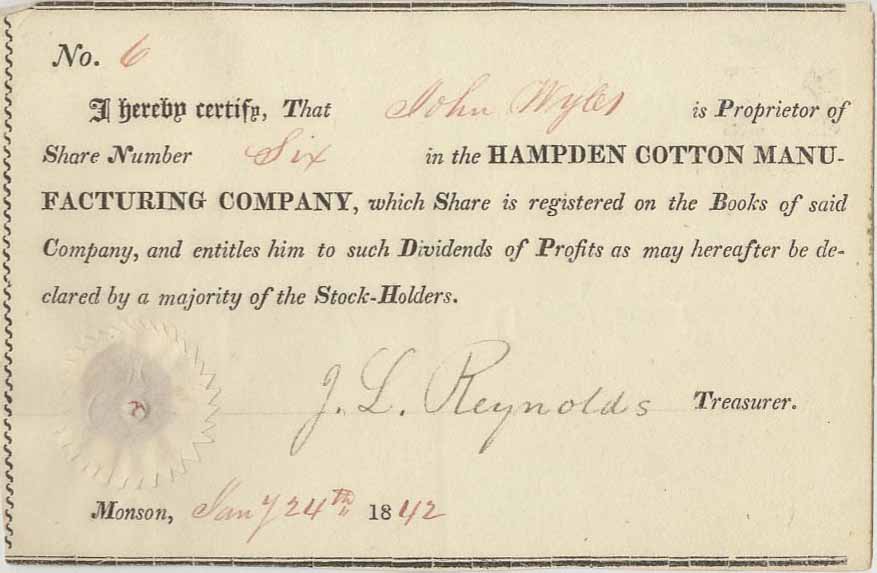 No. 6
I hereby certify, That John Wyles is Proprietor of
Share Number Six in the HAMPDEN COTTON MANU-
FACTURING COMPANY, which Share is registered on the Books of said
Company, and entitles him to such Dividends of Profits as may hereafter be de-
clared by a majority of the Stock-Holders.
J. L. Reynolds Treasurer.
Monson, Jany 24th 1842